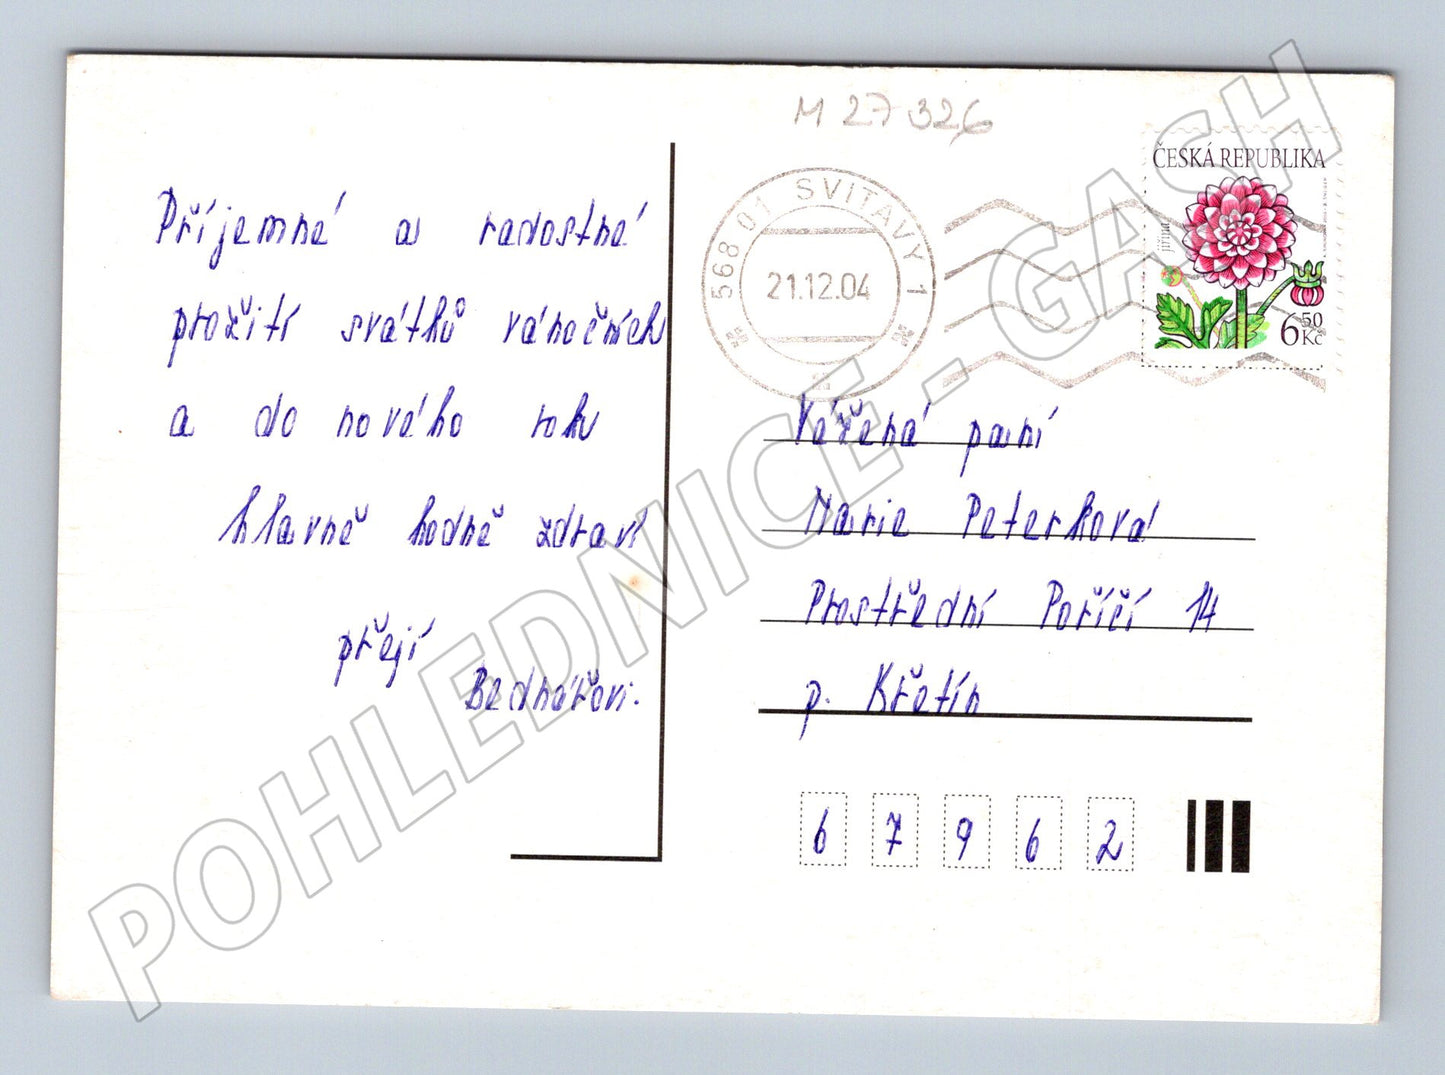 M 27 326
ČESKÁ REPUBLIKA
jiřina
6 50 Kč
568 01 SVITAVY 1
21.12.04
Příjemné a radostné
prožití svátků vánočních
a do nového roku
hlavně hodně zdraví
přejí
Bednářovi.
Vážená paní
Marie Peterková
Prostřední Poříčí 14
p. Křetín
6 7 9 6 2
POHLEDNICE - GASH